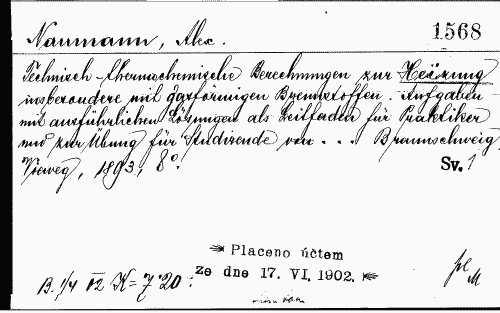 Naumann, Alex. 1568
Technisch-thermochemische Berechnungen zur Heizung
insbesondere mit gasförmigen Brennstoffen. Aufgaben
mit ausführlichen Lösungen als Leitfaden für Praktiker
und zur Übung für Studirende von ... Braunschweig,
Vieweg, 1893, 8°. Sv. 1
Placeno účtem
ze dne 17. VI. 1902.
B. 1/4 02 K = 7·20